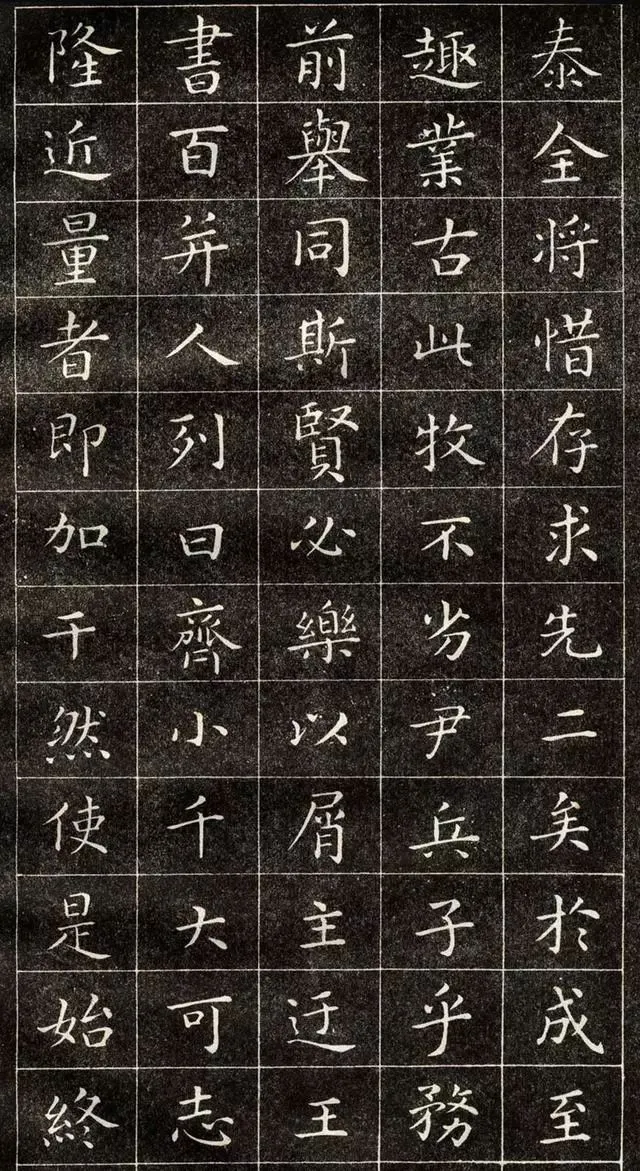 泰全将惜存求先二矣於成至
趣業古此牧不劣尹兵子乎務
前舉同斯賢必樂以屑主迂王
書百并人列曰齊小千大可志
隆近量者即加于然使是始終